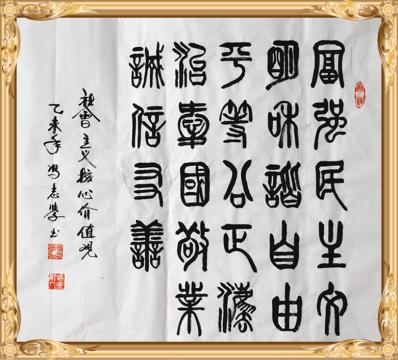 富强民主文
明和谐自由
平等公正法
治爱国敬业
诚信友善
社会主义核心价值观
乙未年 冯志学书